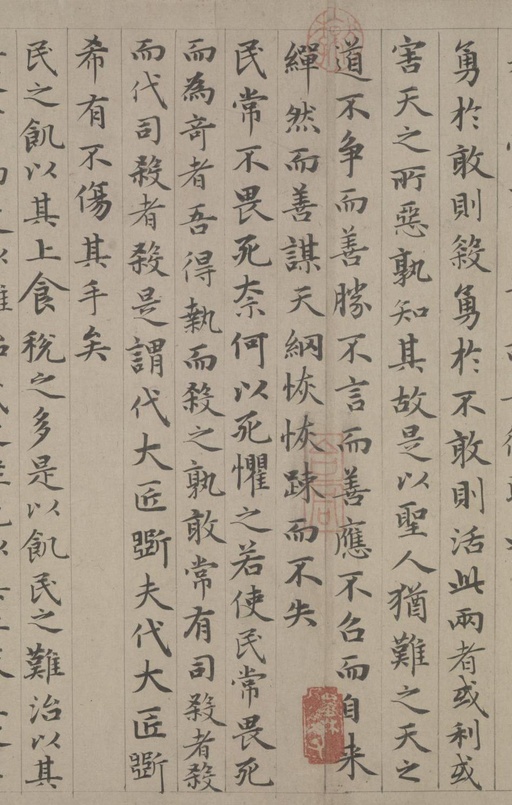 勇於敢則殺勇於不敢則活此兩者或利或
害天之所惡孰知其故是以聖人猶難之天之
道不争而善勝不言而善應不召而自来
繟然而善謀天網恢恢踈而不失
民常不畏死柰何以死懼之若使民常畏死
而為竒者吾得執而殺之孰敢常有司殺者殺
而代司殺者殺是謂代大匠斲夫代大匠斲
希有不傷其手矣
民之飢以其上食稅之多是以飢民之難治以其